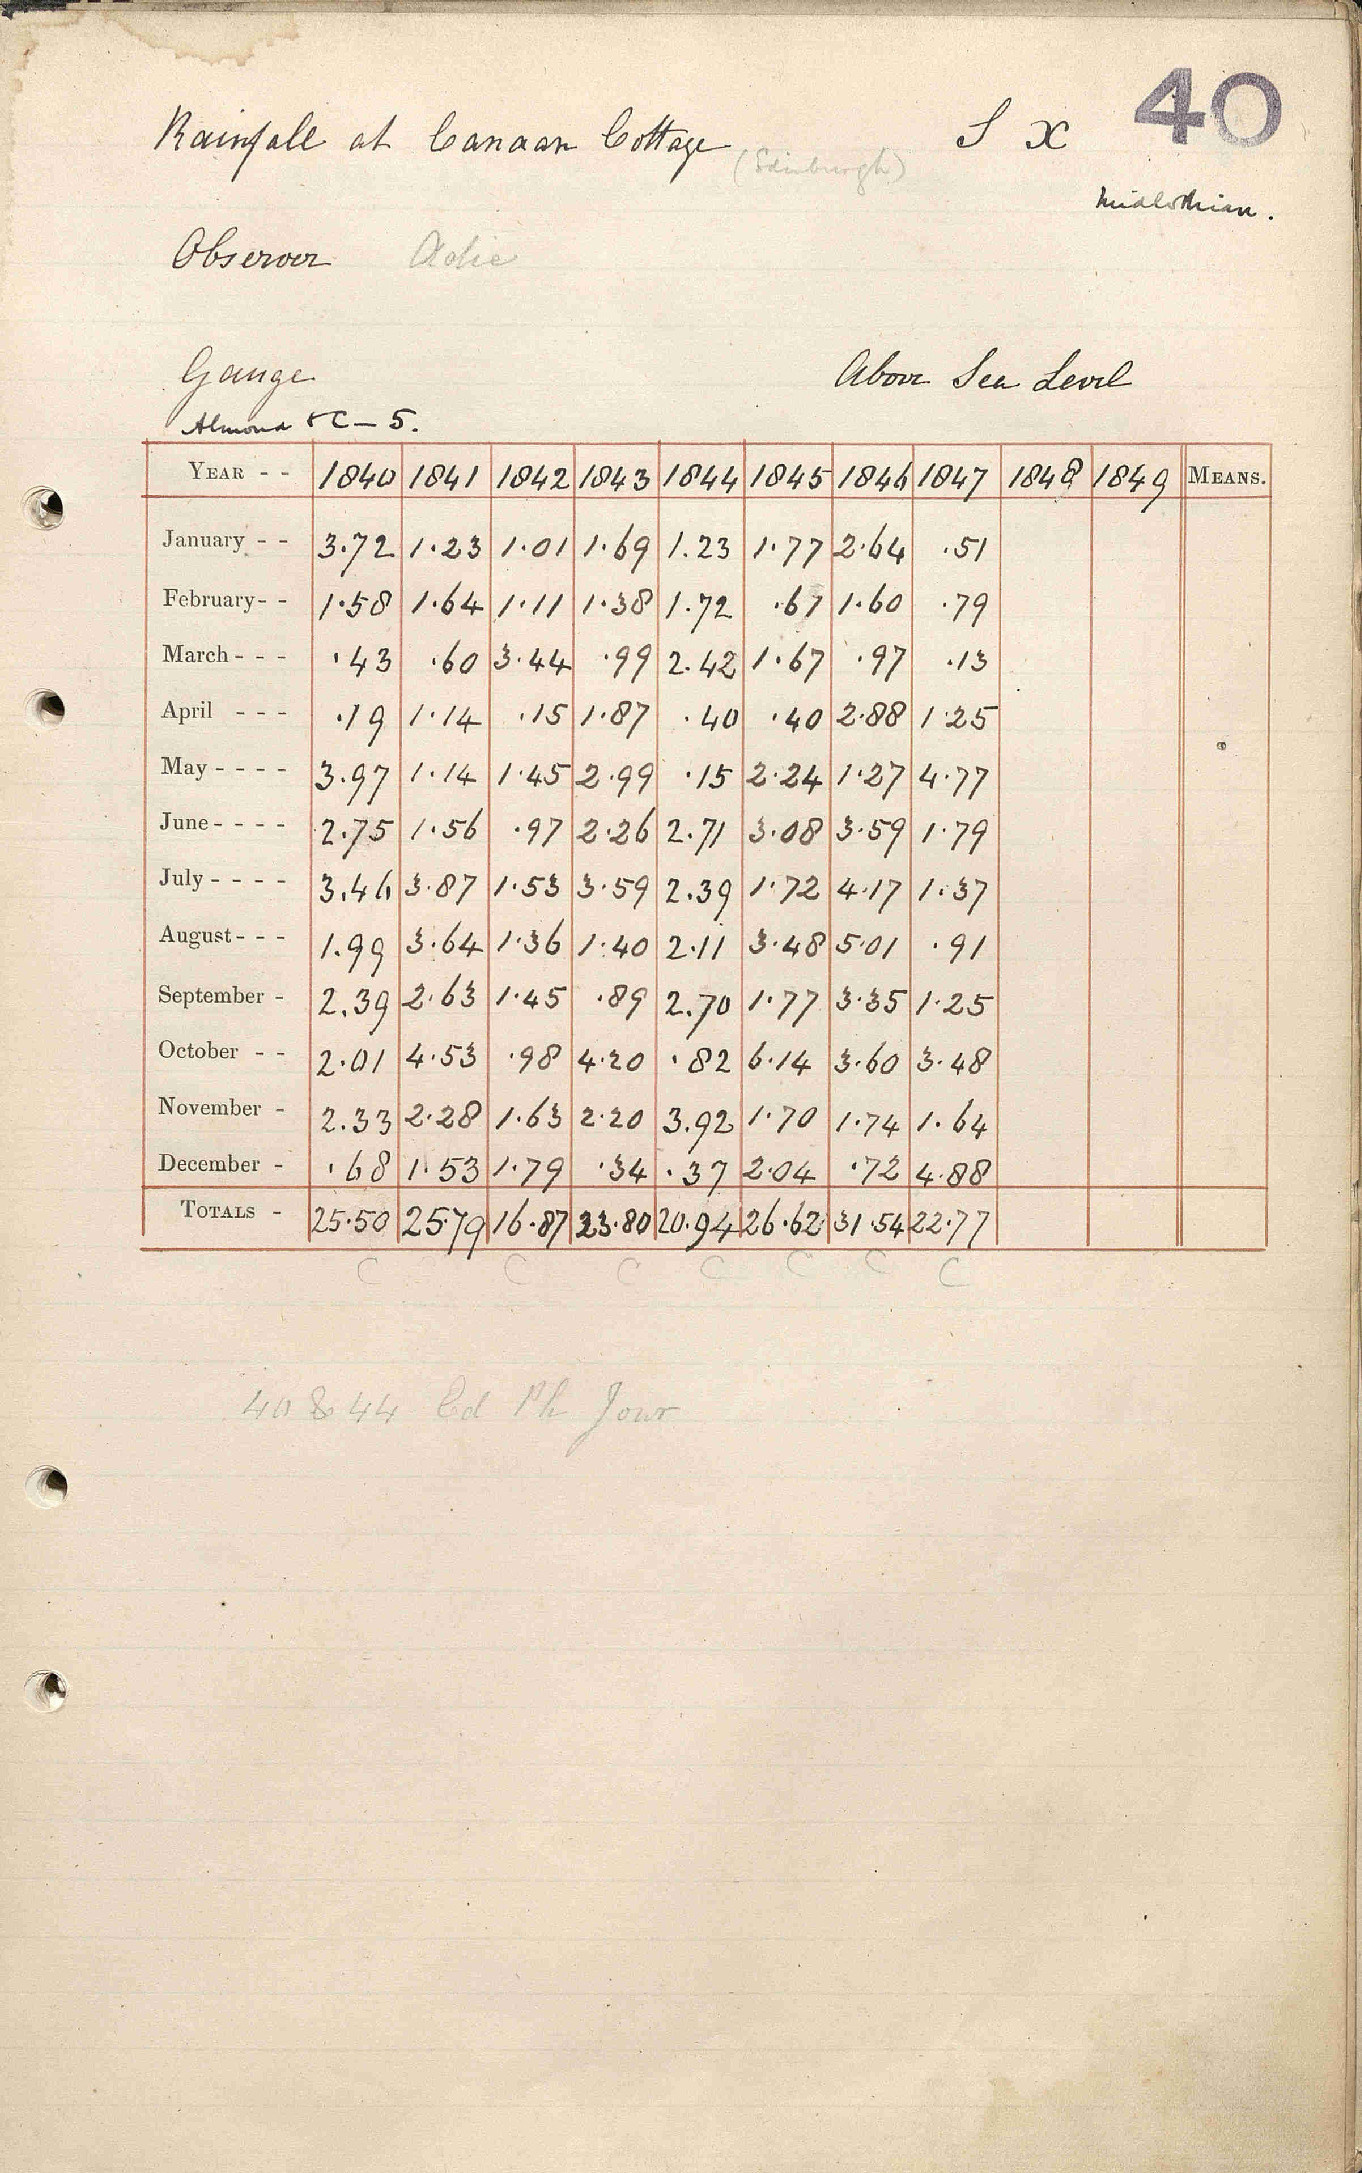 40
Rainfall at Canaan Cottage (Edinburgh) S X
Midlothian.
Observer Adie
Gauge Above Sea Level
Almond & C - 5.
YEAR - - 1840 1841 1842 1843 1844 1845 1846 1847 1848 1849 MEANS.
January - - 3.72 1.23 1.01 1.69 1.23 1.77 2.64 .51
February - - 1.58 1.64 1.11 1.38 1.72 .67 1.60 .79
March - - - .43 .60 3.44 .99 2.42 1.67 .97 .13
April - - - .19 1.14 .15 1.87 .40 .40 2.88 1.25
May - - - - 3.97 1.14 1.45 2.99 .15 2.24 1.27 4.77
June - - - - 2.75 1.56 .97 2.26 2.71 3.08 3.59 1.79
July - - - - 3.46 3.87 1.53 3.59 2.39 1.72 4.17 1.37
August - - - 1.99 3.64 1.36 1.40 2.11 3.48 5.01 .91
September - 2.39 2.63 1.45 .89 2.70 1.77 3.35 1.25
October - - 2.01 4.53 .98 4.20 .82 6.14 3.60 3.48
November - 2.33 2.28 1.63 2.20 3.92 1.70 1.74 1.64
December - .68 1.53 1.79 .34 .37 2.04 .72 4.88
TOTALS - 25.50 25.79 16.87 23.80 20.94 26.62 31.54 22.77
C C C C C C C
40 & 44 Ed Ph Jour